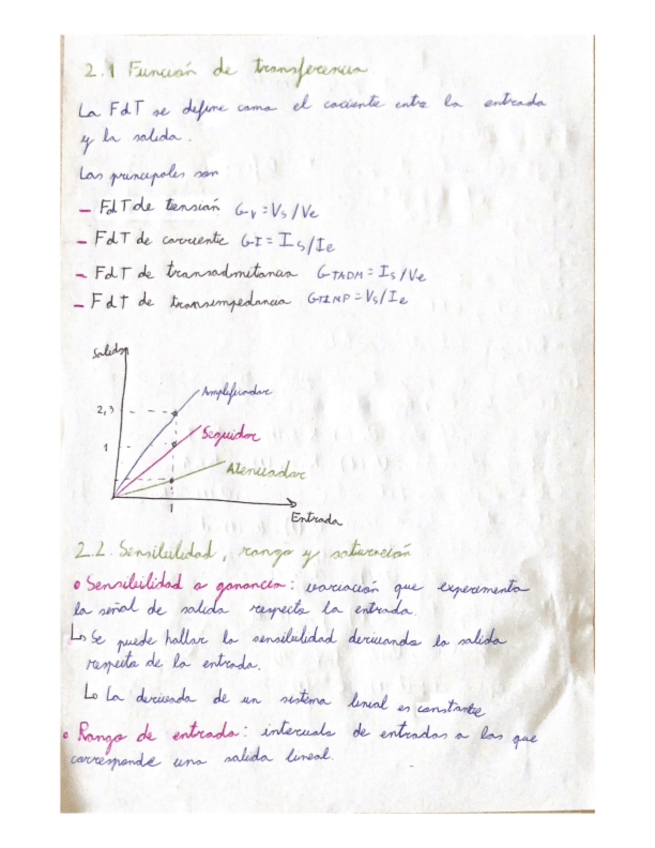 2.1 Función de transferencia
La FdT se define como el cociente entre la entrada
y la salida.
Las principales son
- FdT de tensión Gv = Vs/Ve
- FdT de corriente GI = Is/Ie
- FdT de transadmitancia GTADM = Is/Ve
- FdT de transimpedancia GTIMP = Vs/Ie
Salida
Amplificador
2,3
Seguidor
1
Atenuador
1
Entrada
2.2. Sensibilidad, rango y saturación
• Sensibilidad o ganancia: variación que experimenta
la señal de salida respecto la entrada.
↳ Se puede hallar la sensibilidad derivando la salida
respecto de la entrada.
↳ La derivada de un sistema lineal es constante
• Rango de entrada: intervalo de entradas a las que
corresponde una salida lineal.